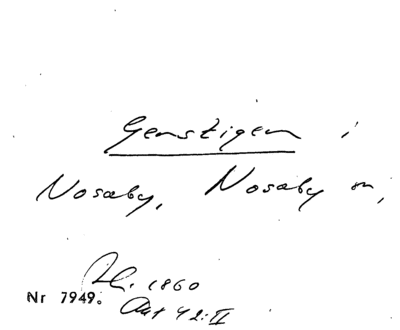 Genstigen i
Nosaby, Nosaby sn,
1860
Nr 7949. Akt 42:II